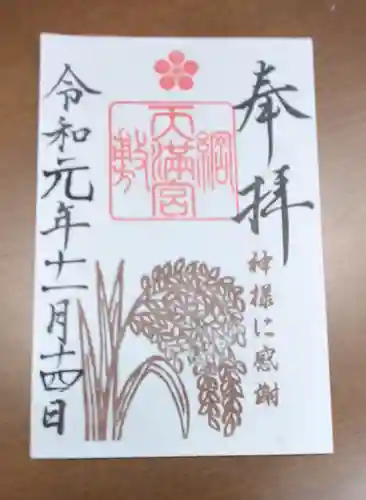 奉拝
綱敷天満宮
神様に感謝
令和元年十一月十四日